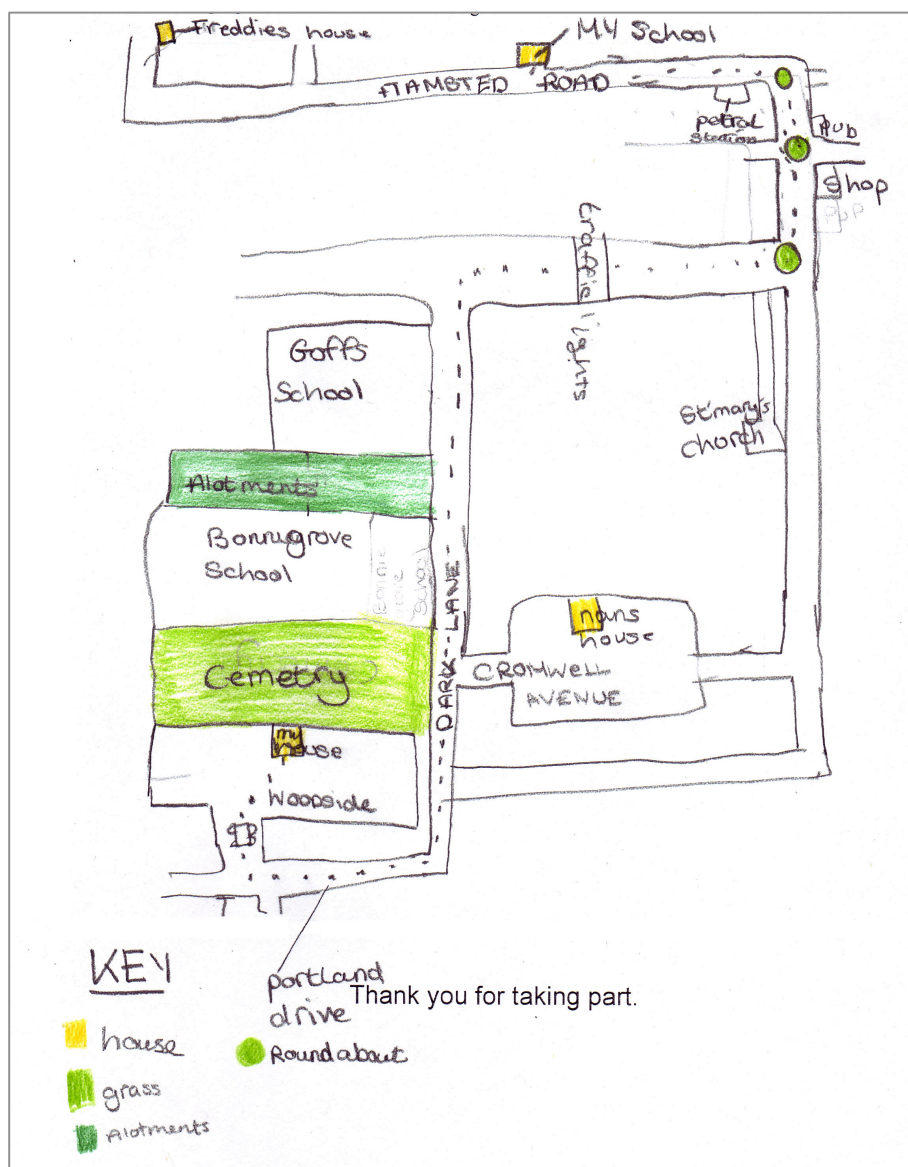 Freddies house
My School
HAMSTED ROAD
petrol
station
Pub
Shop
Pup
traffic lights
Goffs
School
St'mary's
church
Alotments
Bonnygrove
School
Bonnie
grove
School
DARK LANE
nans
house
Cemetry
CROMWELL
AVENUE
my
house
Woodside
portland
drive
Thank you for taking part.
KEY
house
Roundabout
grass
Alotments